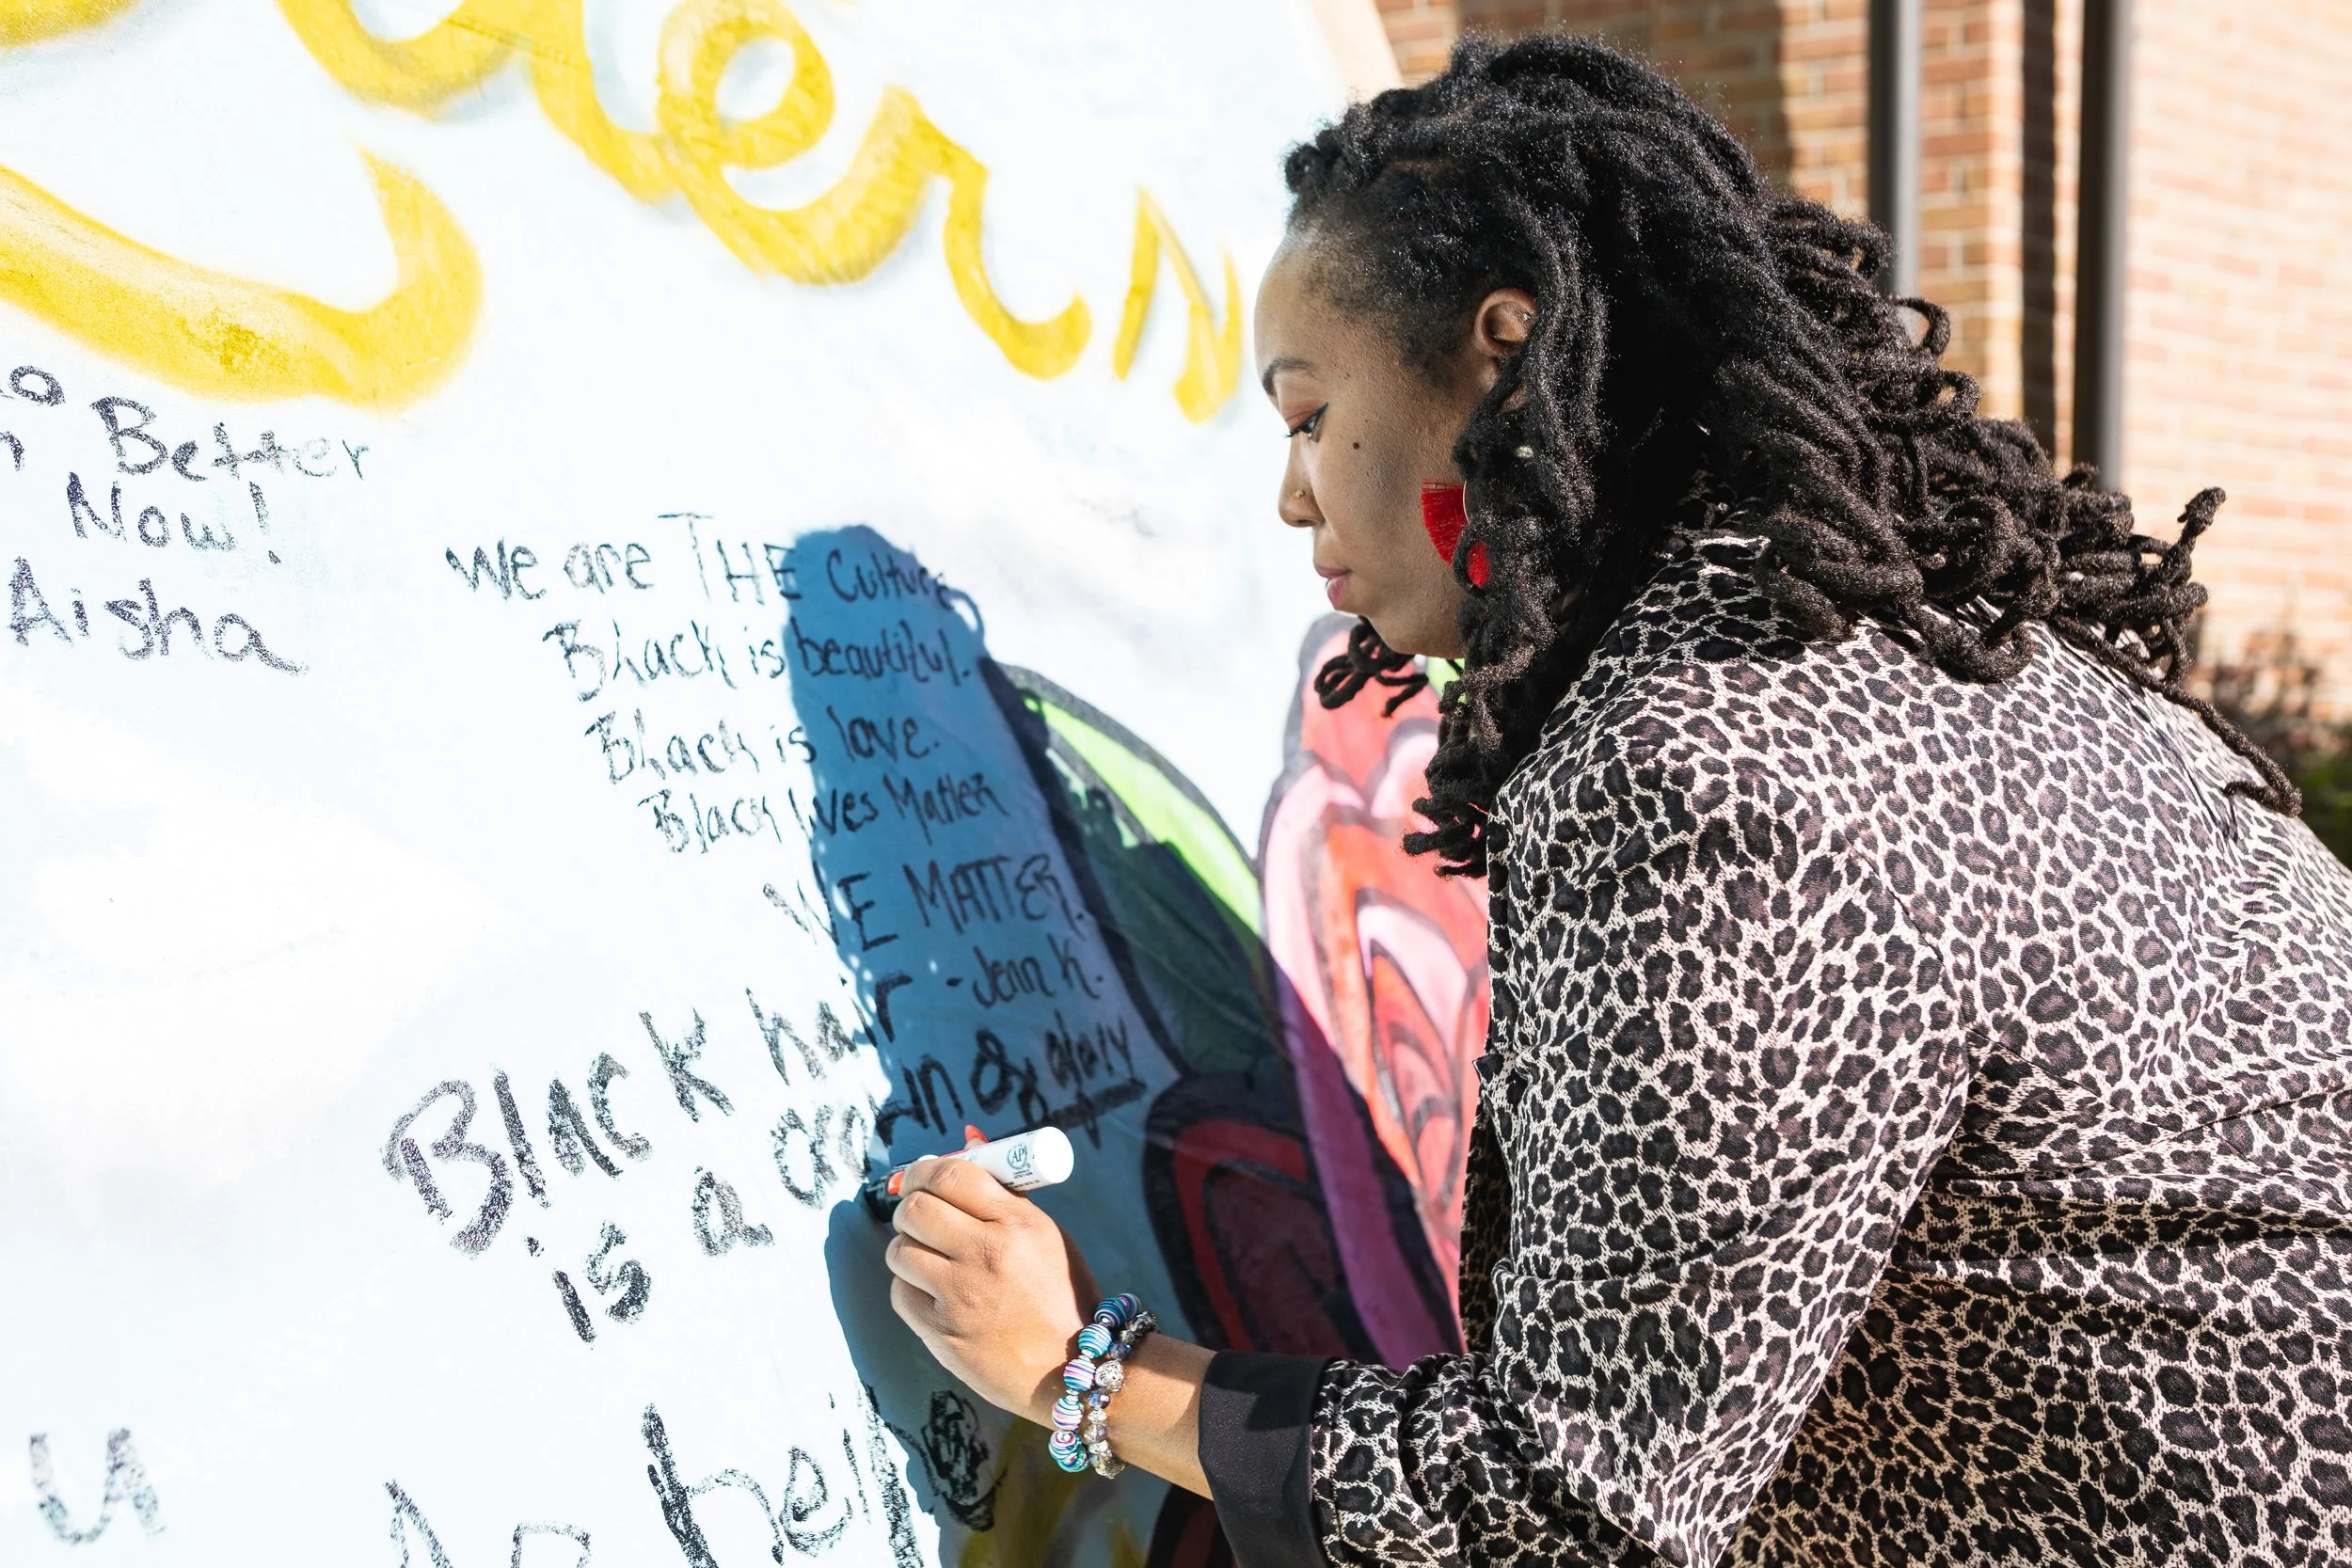 Better
Now!
Aisha
We are THE Culture
Black is beautiful.
Black is love.
Black lives Matter
WE MATTER.
- Jenn K.
Black hair
is a crown of glory